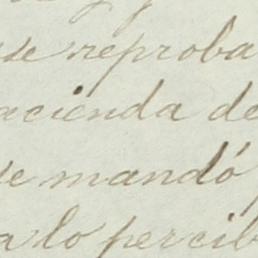 se reproba
acienda de
se mandó
a lo percib